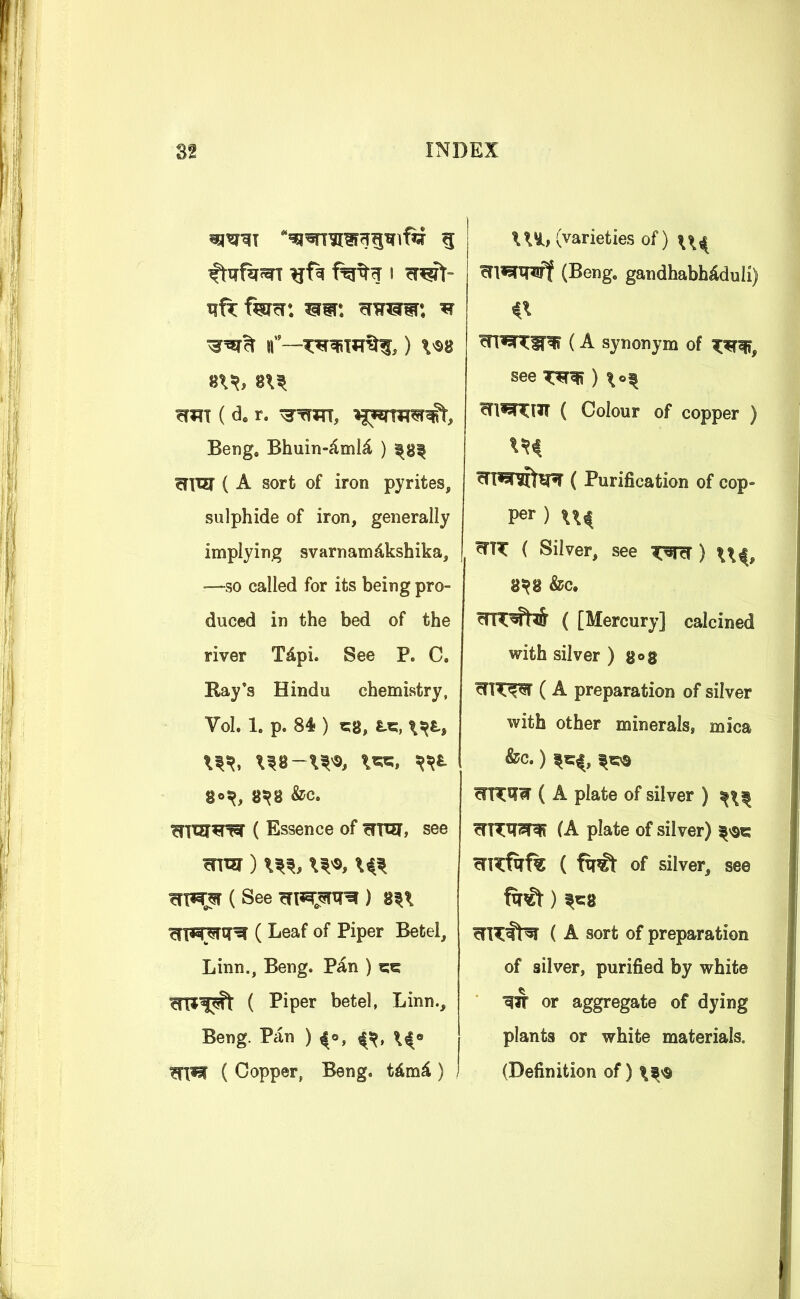 32 INDEX
अथवा
१७४
४१२, ४१३
( d. r.
Beng. Bhuin-ámlá ) ३४३
ताप्य ( A sort of iron pyrites,
sulphide of iron, generally
implying svarnamákshika,
—so called for its being pro-
duced in the bed of the
river Tápi. See P. C.
Ray's Hindu chemistry,
Vol. 1. p. 84 ) ८४, ९८, १२९,
१३२, १३४-१३७, १८८, २२९
४०२, ४२४ &c.
ताप्यसत्त्व ( Essence of ताप्य, see
ताप्य ) १३३, १३७, १६३
( See ) ४३१
( Leaf of Piper Betel,
Linn., Beng. Pán ) ८८
ताम्बूली ( Piper betel, Linn.,
Beng. Pán ) ६०, ६२, १६०
ताम्र ( Copper, Beng. támá )
११५, (varieties of) ११६
(Beng. gandhabháduli)
६१
( A synonym of रसक,
see रसक ) १०३
( Colour of copper )
१२६
ताम्रशोधन ( Purification of cop-
per ) ११६
तार ( Silver, see रजत ) ११६,
४२४ &c.
तारजीर्ण ( [Mercury] calcined
with silver ) ४०४
तारदल ( A preparation of silver
with other minerals, mica
&c. ) ३८६, ३८७
तारपत्र ( A plate of silver ) २१३
तारपत्रक (A plate of silver) ३७८
तारपिष्टि ( पिष्टी of silver, see
पिष्टी ) ३८४
तारबीज ( A sort of preparation
of silver, purified by white
वर्ग or aggregate of dying
plants or white materials.
(Definition of ) १३७